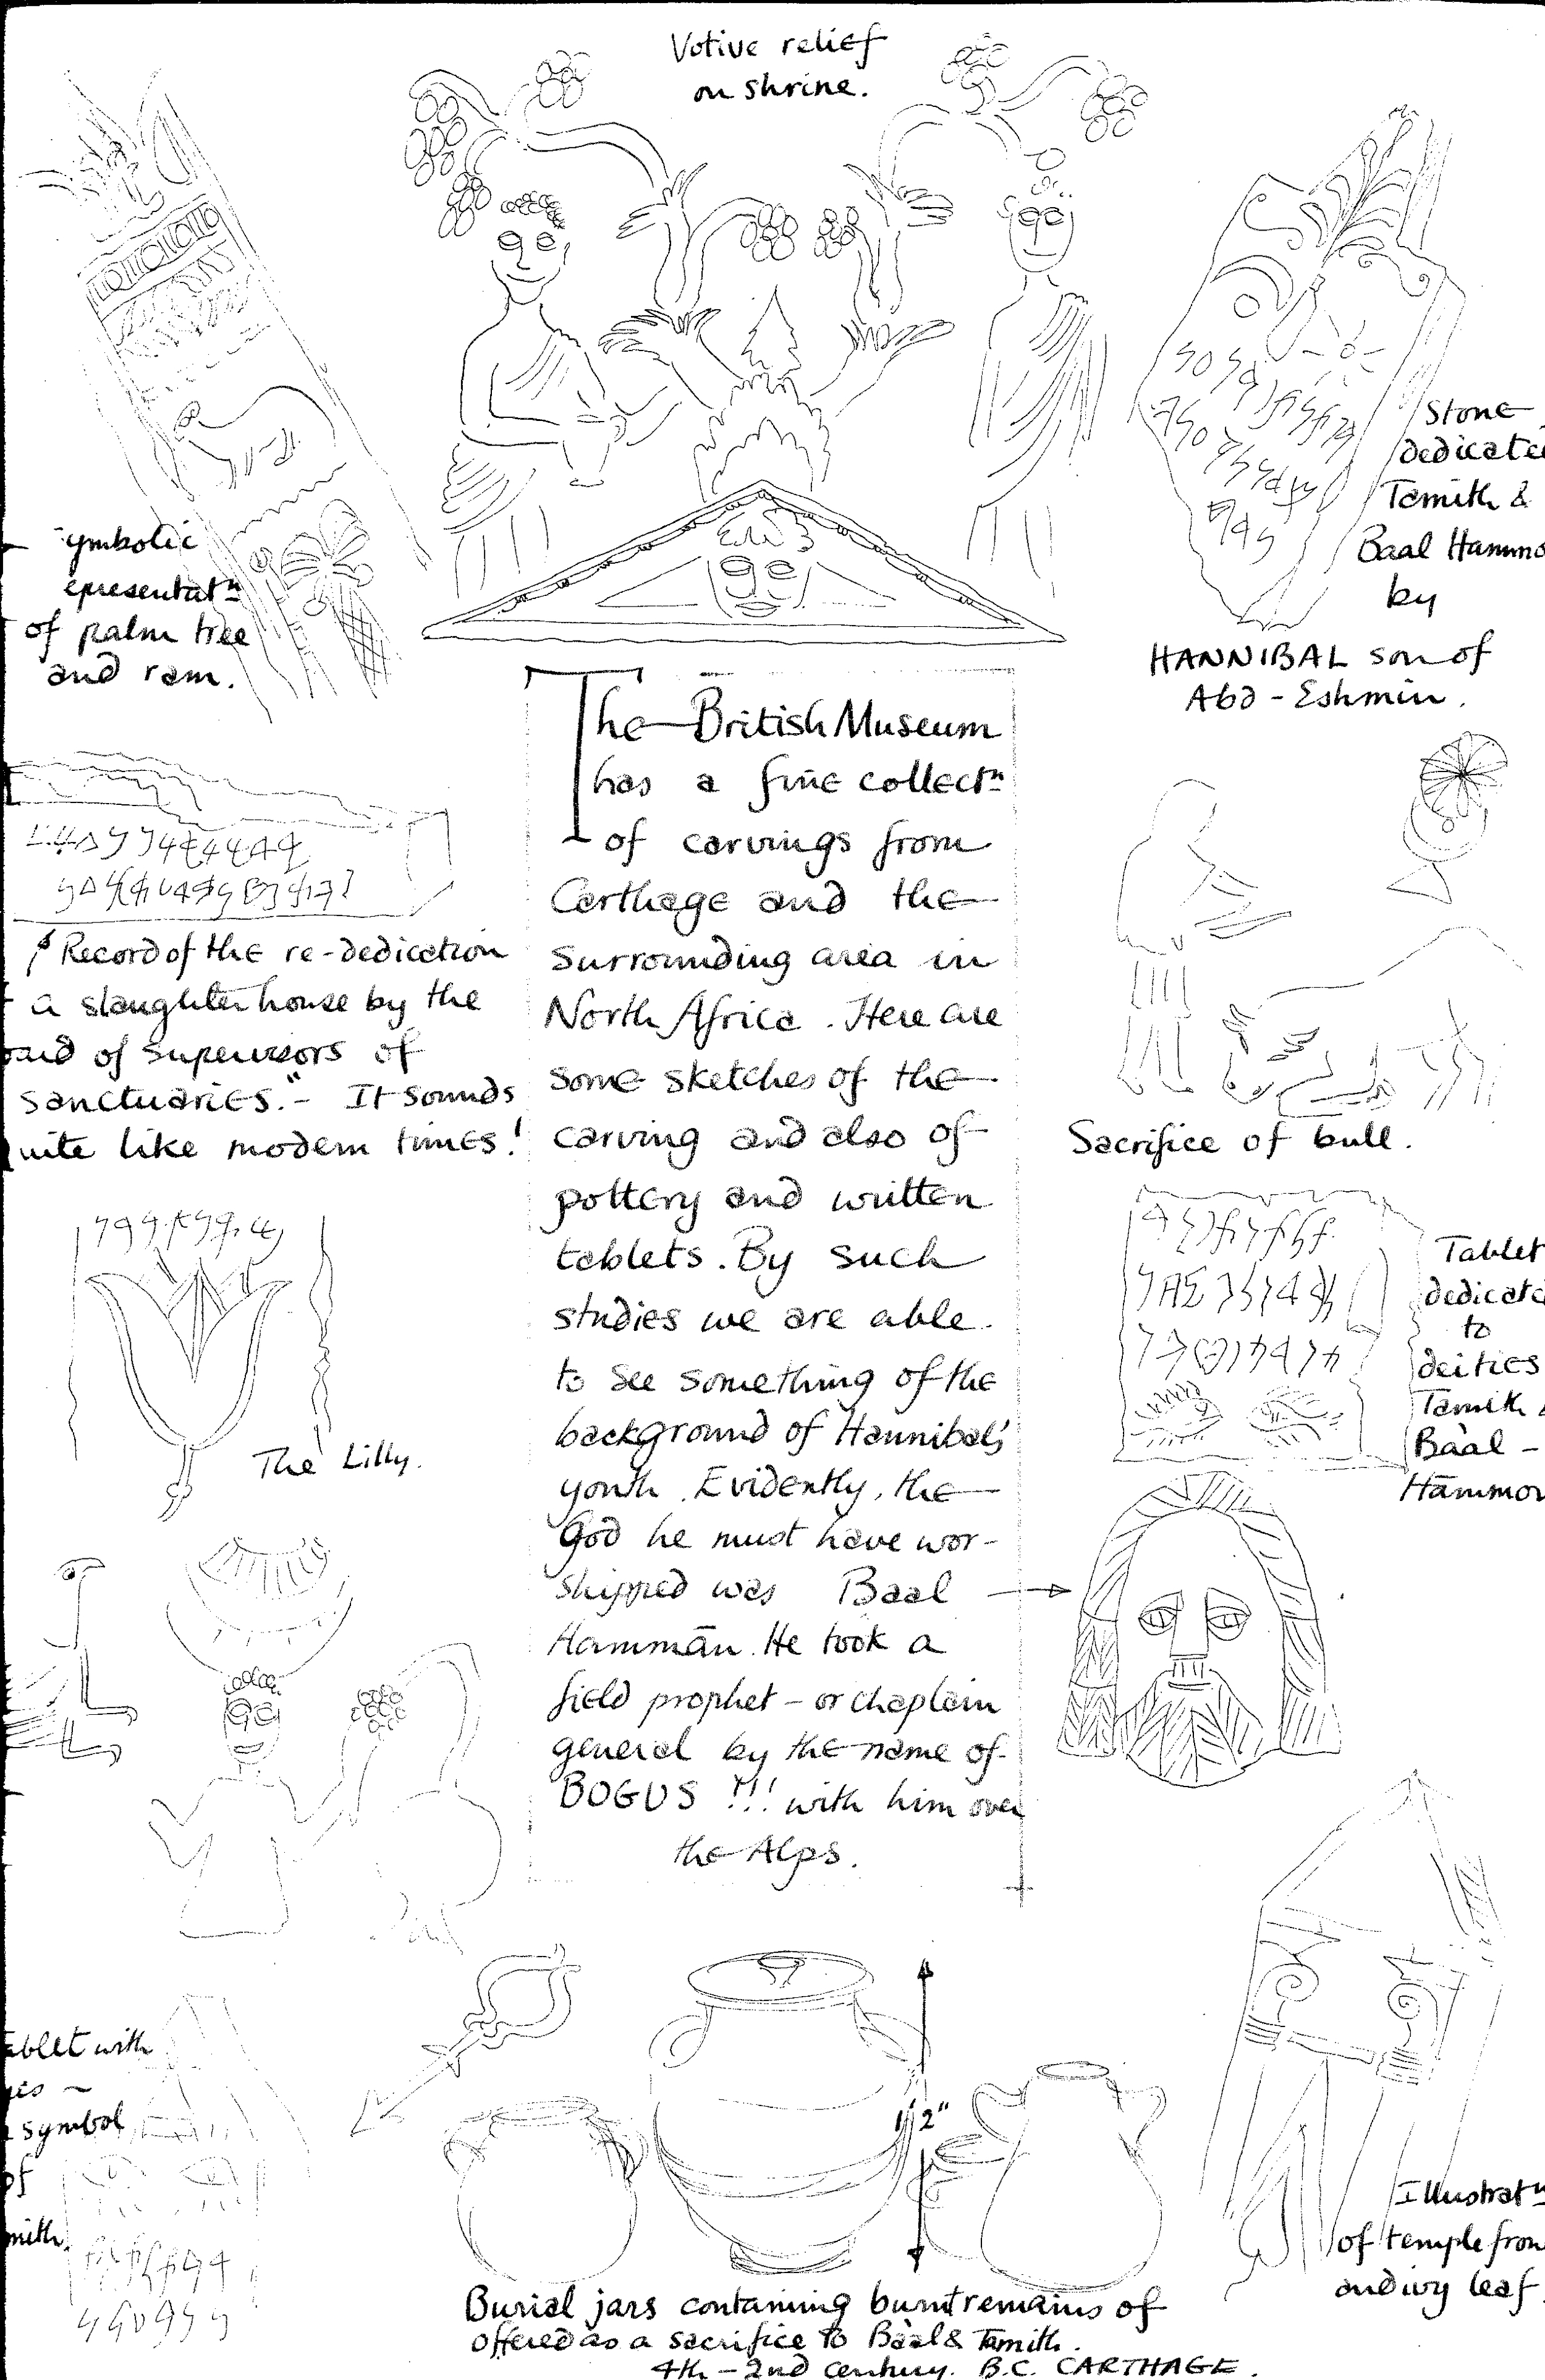 Votive relief
on shrine.
ymbolic
epresentatⁿ
of palm tree
and ram.
Stone
dedicate
Tamith &
Baal Hammo
by
HANNIBAL son of
Abd-Eshmin.
The British Museum
has a fine collectⁿ
of carvings from
Carthage and the
surrounding area in
North Africa. Here are
some sketches of the
carving and also of
pottery and written
tablets. By such
studies we are able
to see something of the
background of Hannibal's
youth. Evidently, the
God he must have wor-
shipped was Baal
Hammān. He took a
field prophet - or chaplain
general by the name of
BOGUS !!! with him over
the Alps.
Record of the re-dedication
a slaughter house by the
oard of Supervisors of
Sanctuaries." - It sounds
uite like modern times!
The Lilly.
Sacrifice of bull.
Tablet
dedicate
to
deities
Tamith &
Bàal -
Hammon
ablet with
symbol
of
mith.
1/2"
Illustratⁿ
of temple fron
and ivy leaf
Burial jars containing burnt remains of
offered as a sacrifice to Bàal & Tamith.
4th - 2nd century. B.C. CARTHAGE.